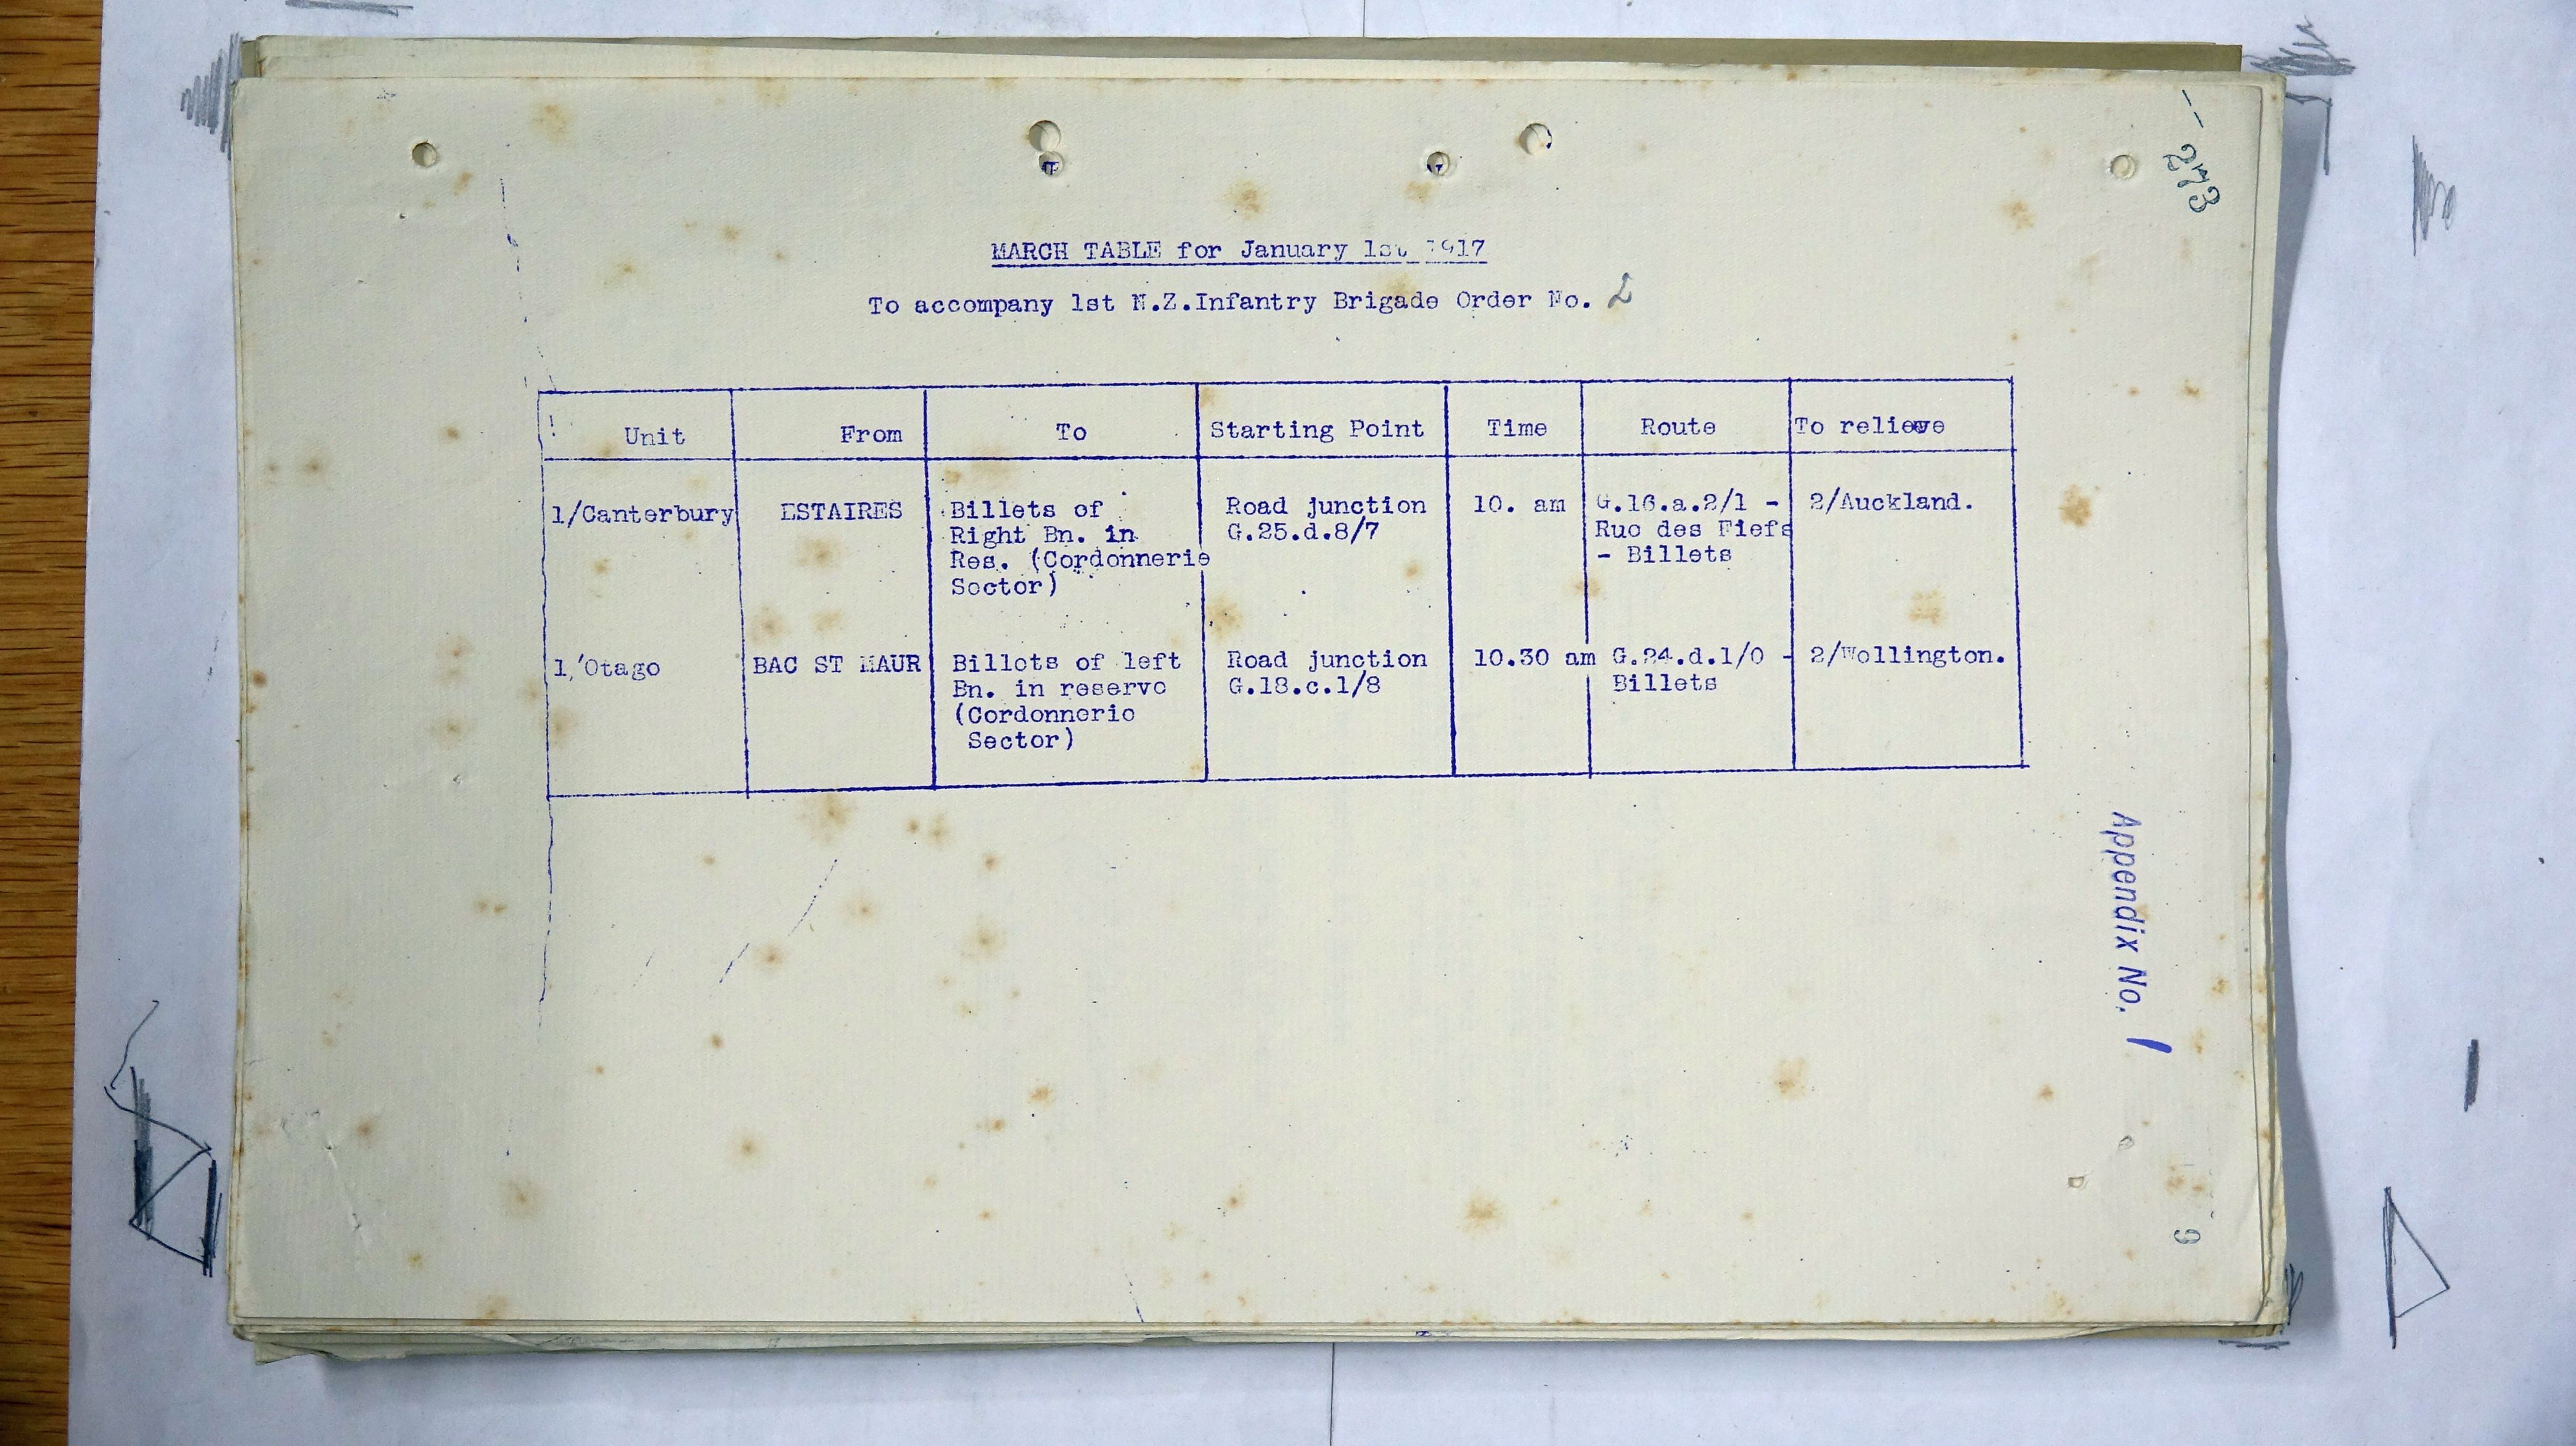 - 273
MARCH TABLE for January 1st 1917
To accompany 1st N.Z.Infantry Brigade Order No. 2
Unit From To Starting Point Time Route To relieve
1/Canterbury ESTAIRES Billets of Road junction 10. am G.16.a.2/1 - 2/Auckland.
Right Bn. in G.25.d.8/7 Rue des Fiefs
Res. (Cordonnerie - Billets
Sector)
1/Otago BAC ST MAUR Billets of left Road junction 10.30 am G.24.d.1/0 - 2/Wellington.
Bn. in reserve G.18.c.1/8 Billets
(Cordonnerie
Sector)
Appendix No. 1
9